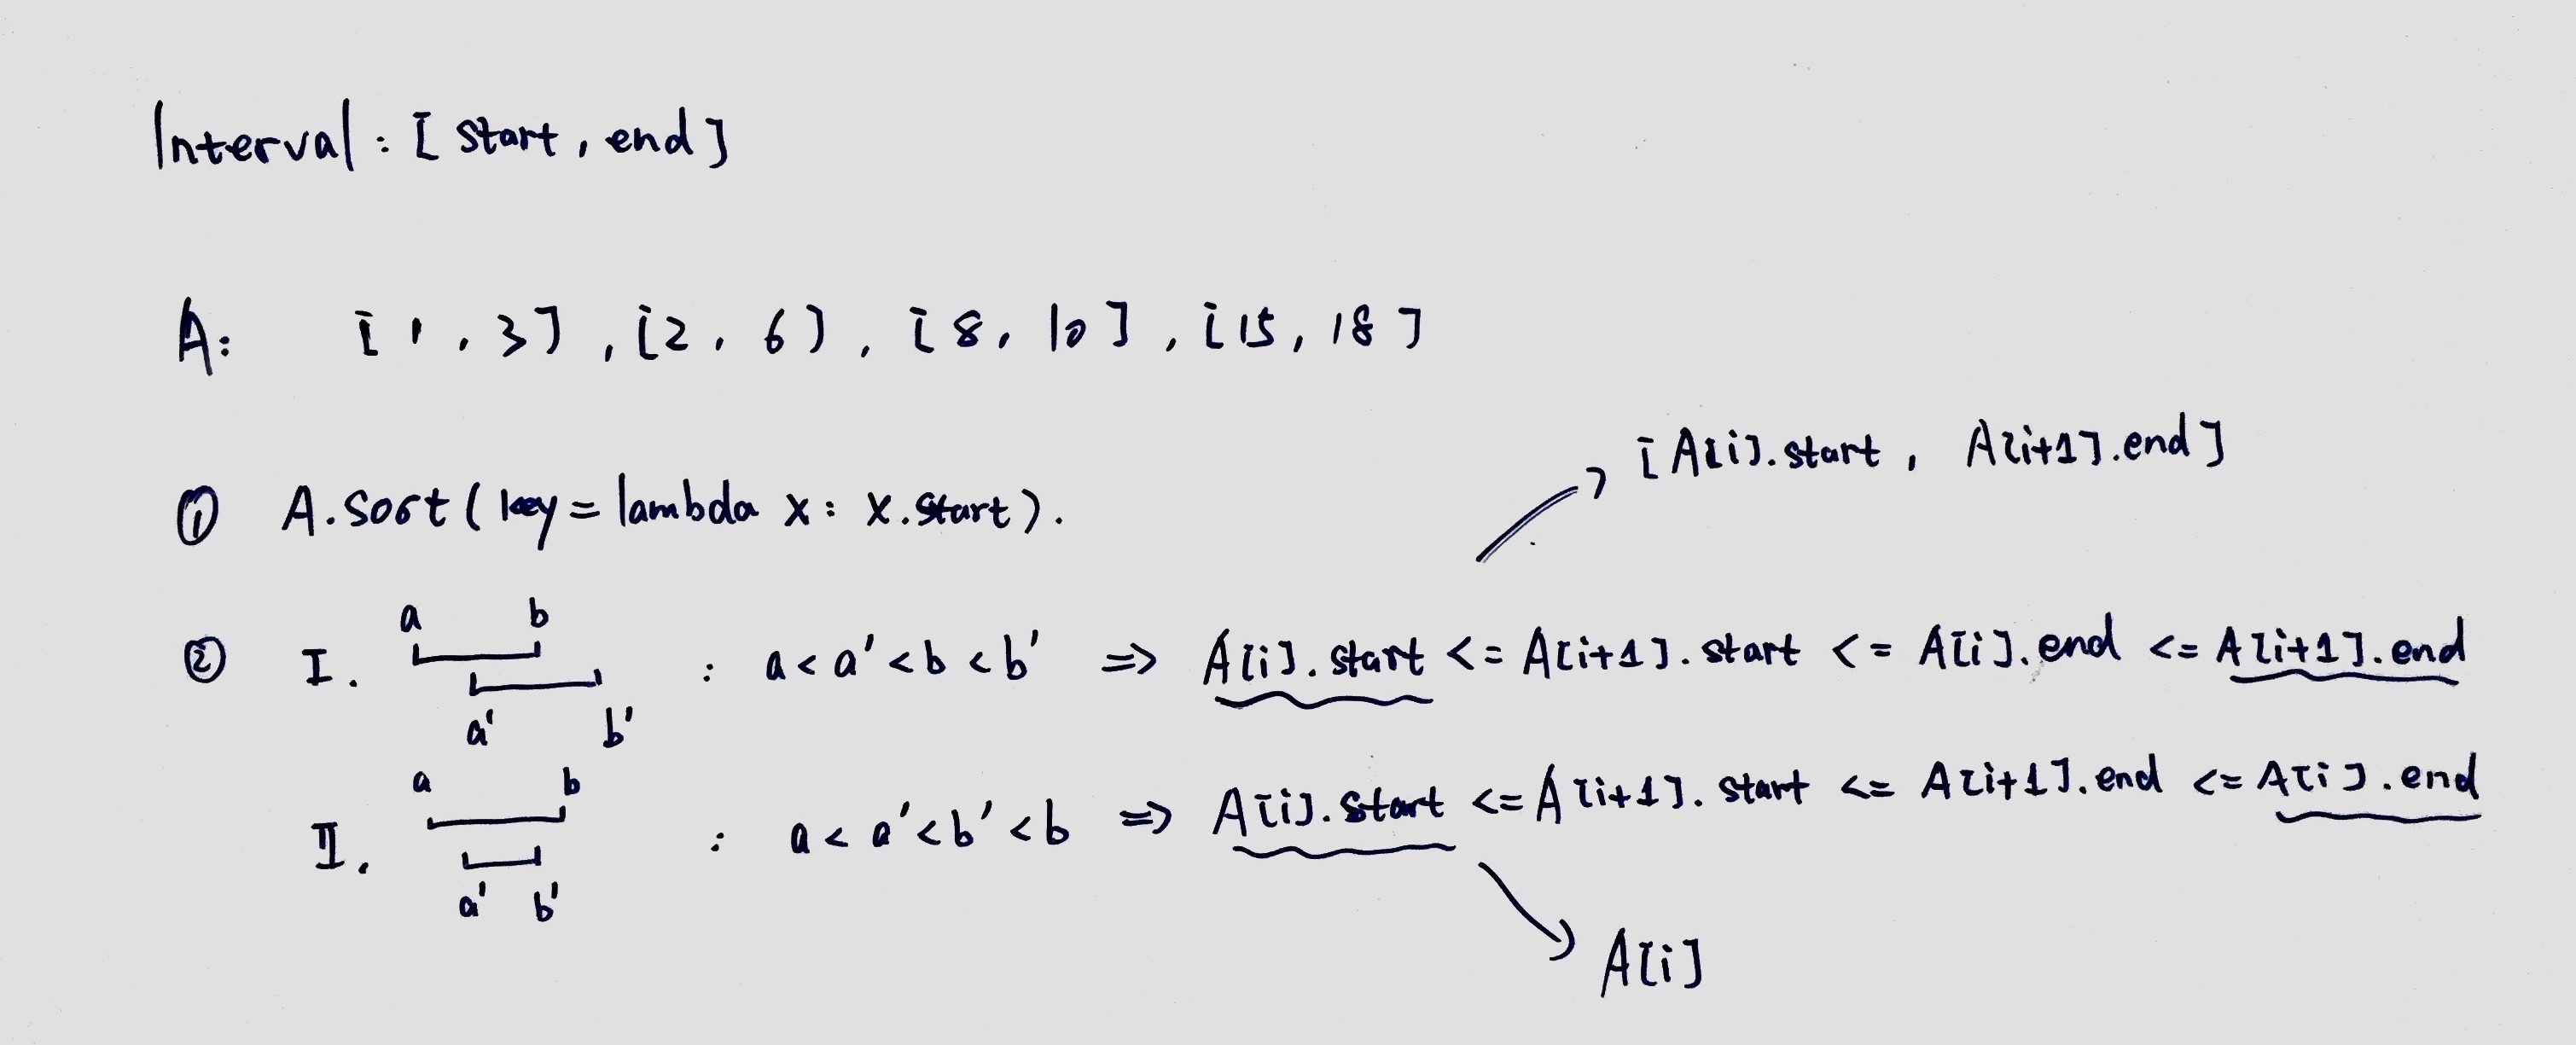 Interval : [ start , end ]
A : [ 1 , 3 ] , [ 2 , 6 ] , [ 8 , 10 ] , [ 15 , 18 ]
[ A[i].start , A[i+1].end ]
① A.sort( key = lambda x : x.start ).
a b
② I. : a < a' < b < b' => A[i].start <= A[i+1].start <= A[i].end <= A[i+1].end
a' b'
a b
II. : a < a' < b' < b => A[i].start <= A[i+1].start <= A[i+1].end <= A[i].end
a' b'
A[i]